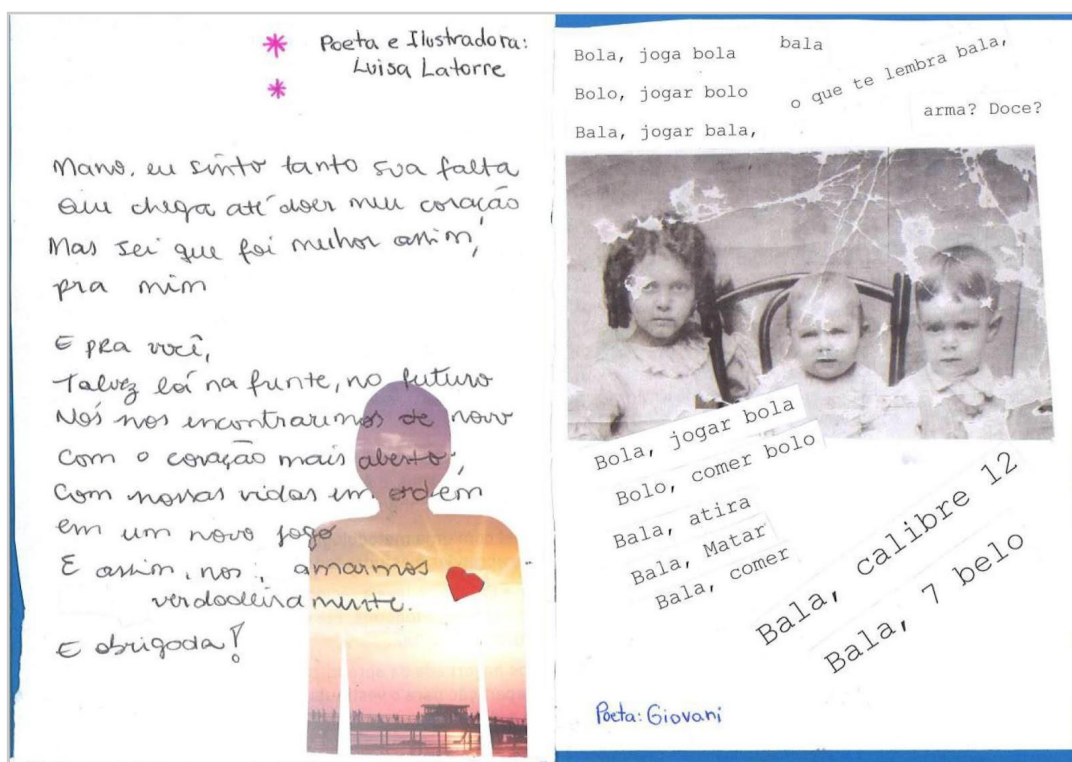 Poeta e Ilustradora:
Luisa Latorre
Mano, eu sinto tanto sua falta
que chega até doer meu coração
Mas sei que foi melhor assim,
pra mim
E pra você,
Talvez lá na frente, no futuro
Nós nos encontraremos de novo
com o coração mais aberto,
com nossas vidas em ordem
em um novo jogo
E assim, nos, amarmos
verdadeiramente.
E obrigada!
Bola, joga bola
Bolo, jogar bolo
Bala, jogar bala,
bala
o que te lembra bala,
arma? Doce?
Bola, jogar bola
Bolo, comer bolo
Bala, atira
Bala, Matar
Bala, comer
Bala, calibre 12
Bala, 7 belo
Poeta: Giovani